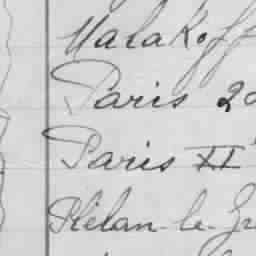 Malakoff
Paris 20
Paris II
Plélan-le-Gr